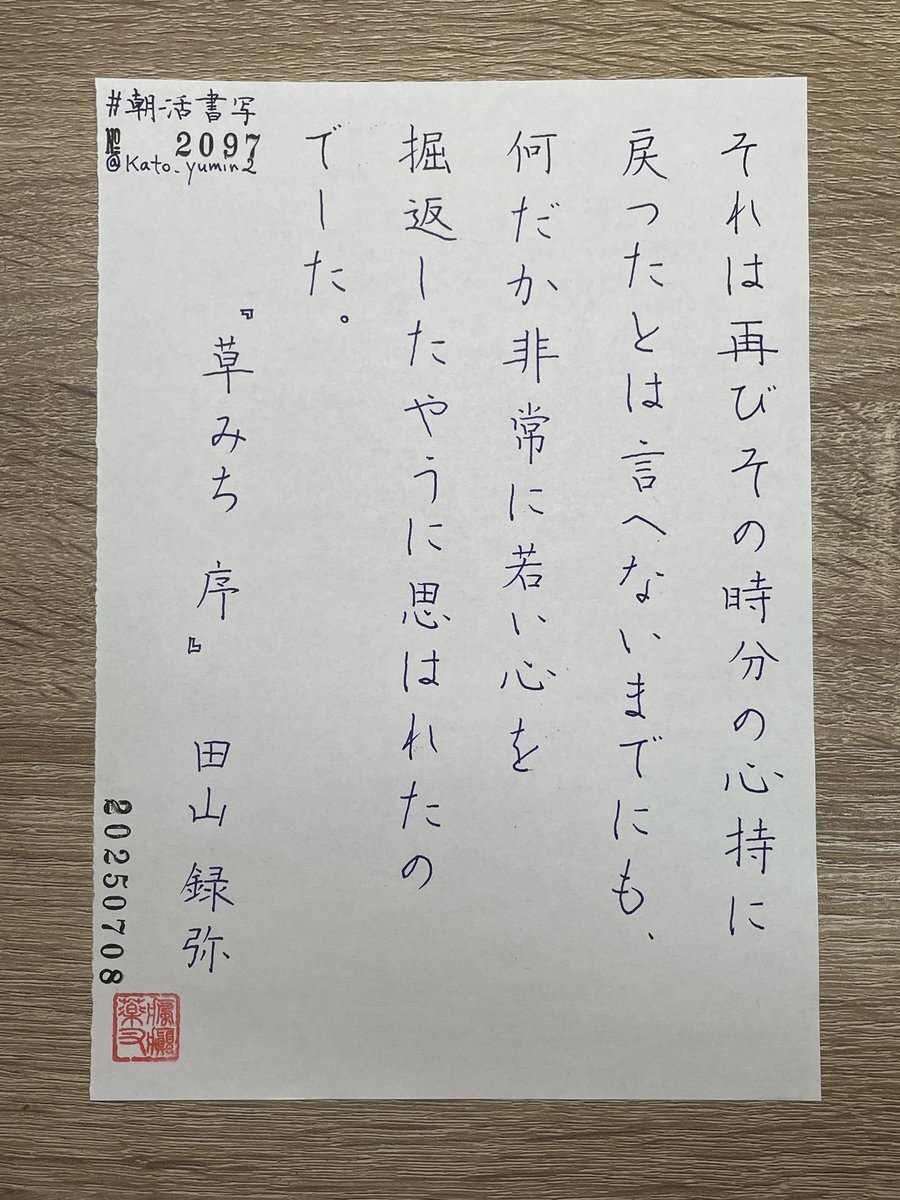 それは再びその時分の心持に
戻つたとは言へないまでにも、
何だか非常に若い心を
掘返したやうに思はれたの
でした。
『草みち 序』 田山録弥
#朝活書写
№ 2097
@Kato_yumin2
20250708